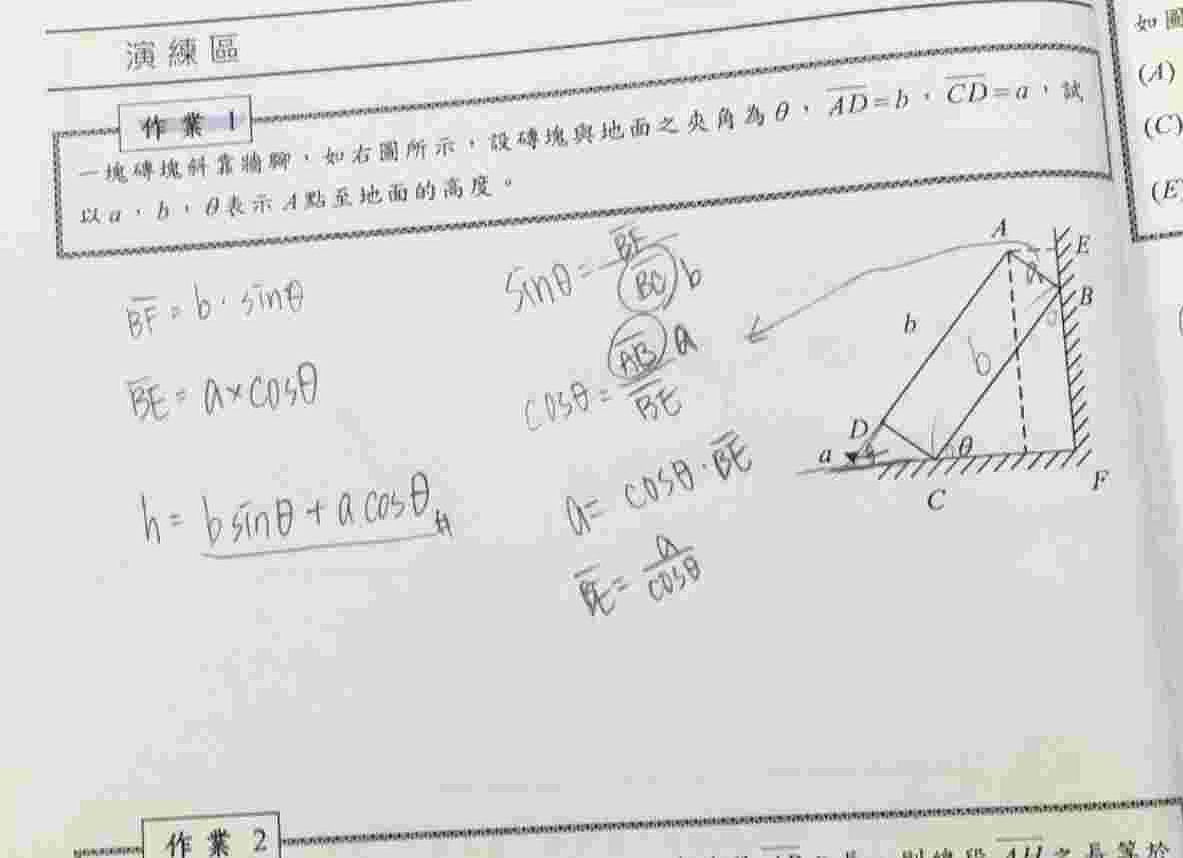 演練區
作業 1
一塊磚塊斜靠牆腳，如右圖所示，設磚塊與地面之夾角為θ，AD=b，CD=a，試
以a，b，θ表示A點至地面的高度。
BF = b · sinθ
BE = a×cosθ
h = b sinθ + a cosθ #
sinθ = BF / BC b
cosθ = AB a / BE
a = cosθ · BE
BE = a / cosθ
A
E
a
B
b
b
D
a
θ
C
F
如圖
(A)
(C)
(E)
作業 2